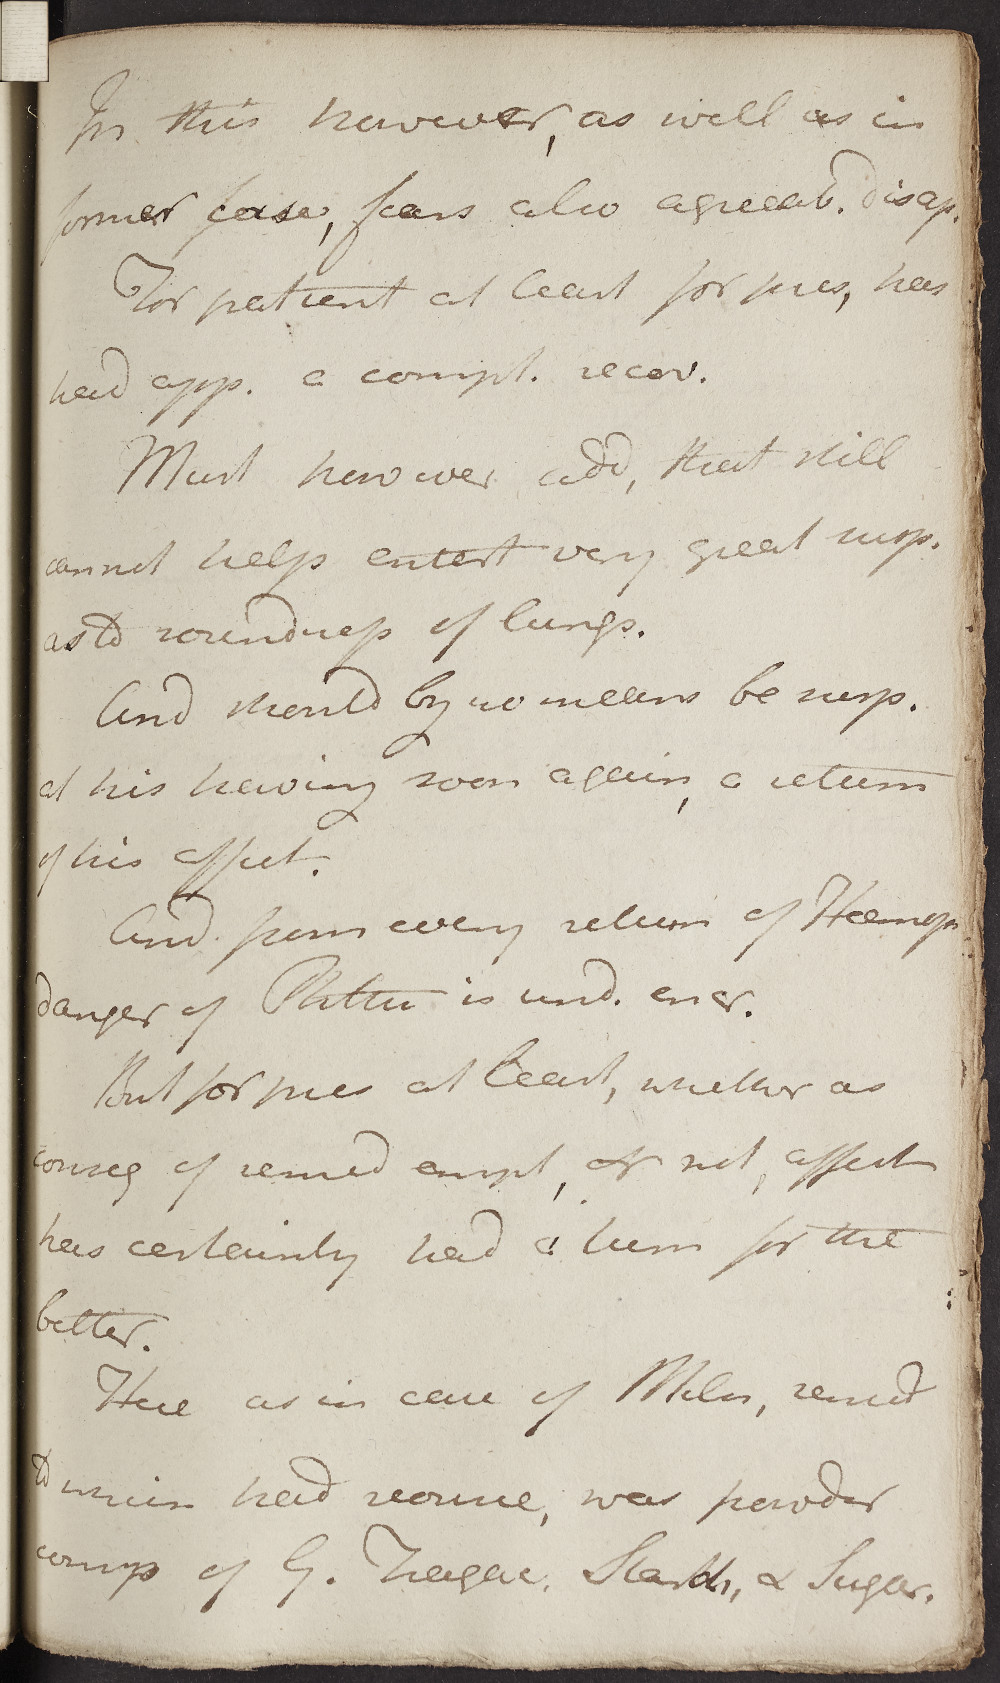 In this however, as well as in
former case, fears also agreeab. disap.
For patient at least for pres, has
had app. a compl. recov.
Must however add, that still
cannot help entert very great susp.
as to soundness of lungs.
And should by no means be surp.
at his having soon again, a return
of his affect.
And from every return of Hæmop
danger of Phthis is und. encr.
But for pres at least, whether as
conseq of remed empl, or not, affect
has certainly had a turn for the
better.
Here as in case of Miln, remed
to which had recourse, was powder
comp of G. Tragac. Starch, & Sugar.